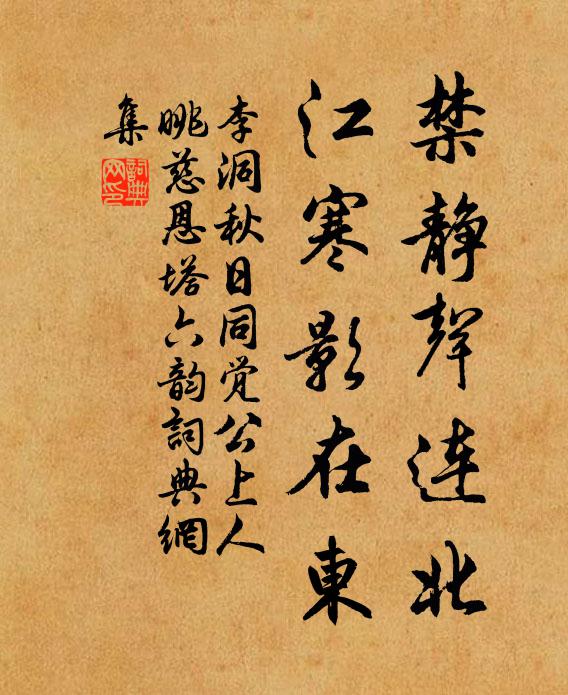 禁静聲連北
江寒影在東
李洞秋日同觉公上人
眺慈恩塔六韵詞典網
集
詞典
网印